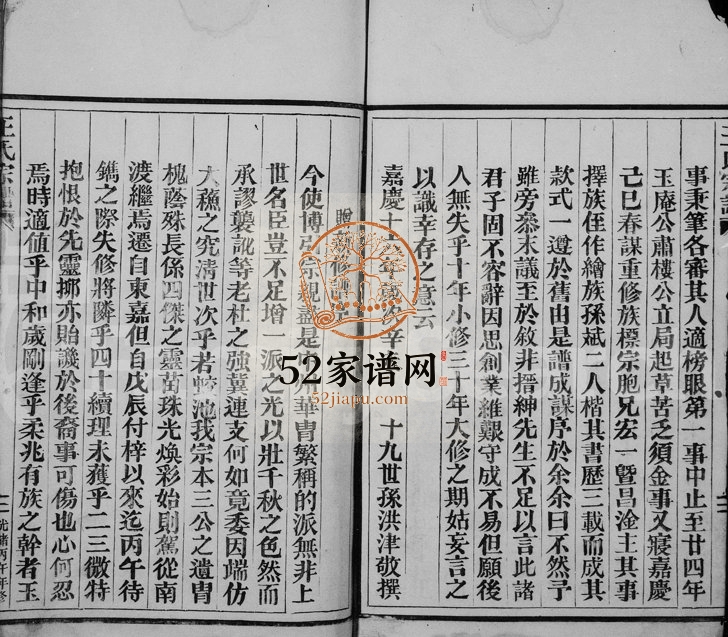 事秉筆各審其人適榜眼第一事中止至廿四年
玉庵公肅樓公立局起草苦乏須金事又寢嘉慶
己巳春謀重修族標宗胞兄宏一暨昌淦主其事
擇族侄作繪族孫斌二人楷其書歷三載而成其
款式一遵於舊由是譜成謀序於余余曰不然予
雖旁叅末議至於敘非搢紳先生不足以言此諸
君子固不容辭因思創業維艱守成不易但願後
人無失乎十年小修三十年大修之期姑妄言之
以識幸存之意云
嘉慶十 十九世孫洪津敬撰
今使博 華胄繁稱的派無非上
世名臣豈不足增一派之光以壯千秋之色然而
承謬襲訛等老杜之強葺連支何如竟委因端仿
大蘇之究淸世次乎若 池我宗本三公之遺胄
槐蔭殊長係四傑之靈苗珠光煥彩始則駕從南
渡繼焉遷自東嘉但自戊辰付梓以來迄丙午待
鐫之際失修將隣乎四十續理未獲乎二三微特
抱恨於先靈揶亦貽譏於後裔事可傷也心何忍
焉時適値乎中和歲剛逢乎柔兆有族之幹者玉
光緒丙午年修
52家谱网
52jiapu.com